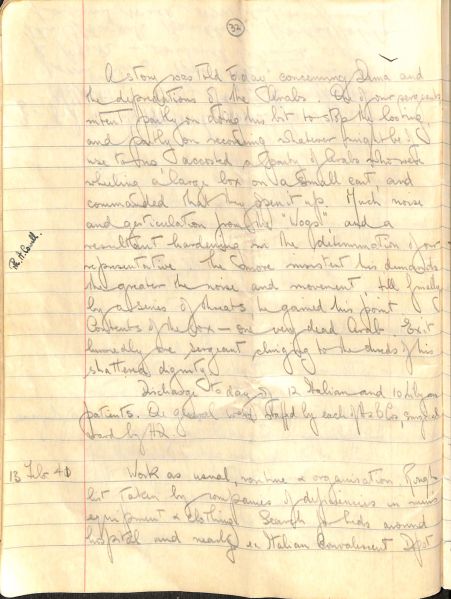 32
A story was told today concerning Derna and
the depredations of the Arabs. One of our sergeants
intent partly on doing his bit to stop the looting
and partly on recovering whatever might be of
use to us accosted a party of Arabs who were
wheeling a large box on a small cart and
commanded that they open it up. Much noise
and gesticulation from the "Wogs" and a
resultant hardening in the determination of our
representative. The more insistent his demands
the greater the noise and movement till finally
by a series of threats he gained his point
Contents of the box - one very dead Arab. Exit
hurriedly one sergeant clinging to the shreds of his
shattered dignity
Discharged today 12 Italian and 10 Libyan
patients. One general ward staffed by each of A & B Cos, surgical
ward by HQ.
13 Feb 41 Work as usual, routine & organisation
list taken by companies of deficiencies in mens
equipment & clothing. Search of huts around
hospital and nearby in Italian Convalescent Dept